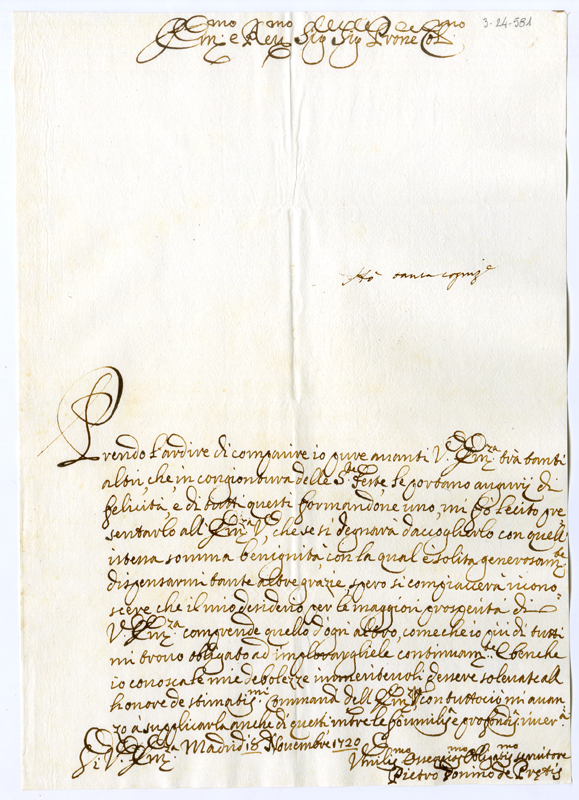 3-24-581
Em:mo e Reu:mo Sig:r Sig:r Prone Col:mo
Prendo l'ardire di comparire io pure auanti V. Em:za trà tanti
altri, che in congiontura delle S:te Feste, le portano augurij di
felicità, e di tutti questi formandone uno, mi fò lecito pre
sentarlo all'Em:za V., che se si degnarà d'accoglierlo con quell'
somma benignità, con la qual'è solita generosam:te
dispensarmi tante altre grazie, spero si compiacerà ricono
scere che il mio desiderio per le maggiori prosperità di
V. Em:za comprende quello d'ogni altro, come che io più di tutti
mi trouo obligato ad implorargliele continuam:te. E benche
io conosca le mie debolezze immeriteuoli d'essere solleuate all'
honore de stimatis:mi Commandi dell'Em:za V. con tutto ciò mi auan
zo à supplicarla anche di questi, mentre le fò humilis:a e profondis:a riuer:a
Di V. Em:za Madrid 18 Nouembre 1720
Humilis:mo Deuotis:mo Obligatis:mo seruitore
Pietro Donino de Pretis